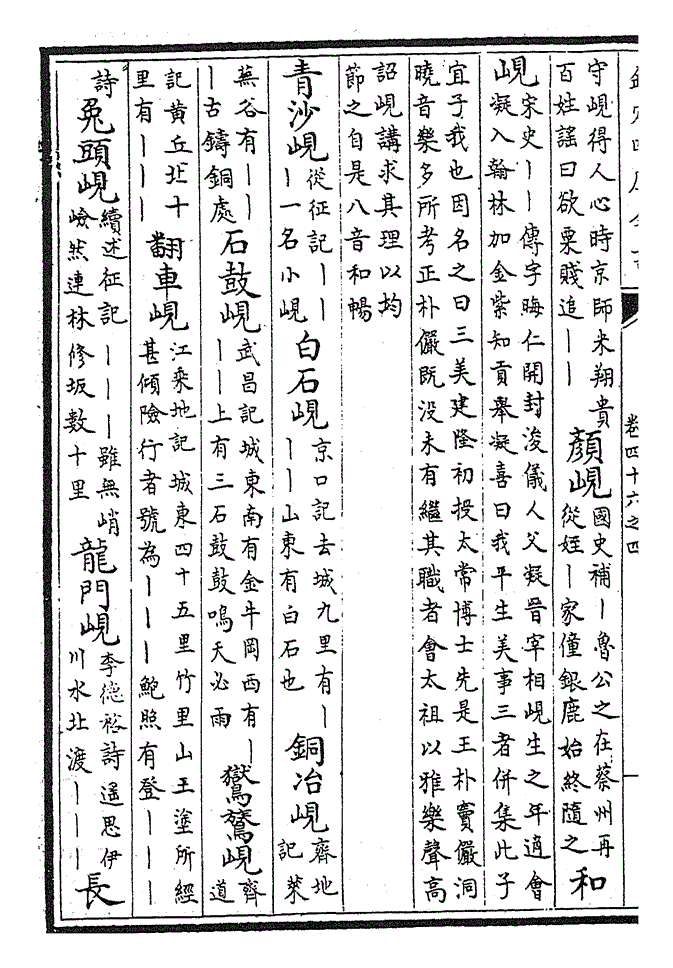 卷四十六之四
一
守峴得人心時京師米翔貴
百姓謡曰欲粟賤追｜｜
顔峴
國史補｜魯公之在蔡州再
從姪｜家僮銀鹿始終隨之
和
峴
宋史｜｜傳字晦仁開封浚儀人父凝晉宰相峴生之年適會
凝入翰林加金紫知貢舉凝喜曰我平生美事三者併集此子
宜于我也因名之曰三美建隆初授太常博士先是王朴竇儼洞
曉音樂多所考正朴儼既没未有繼其職者會太祖以雅樂聲高
詔峴講求其理以均
節之自是八音和暢
青沙峴
從征記｜｜
｜一名小峴
白石峴
京口記去城九里有｜
｜｜山東有白石也
銅冶峴
齊地
記萊
蕪谷有｜｜
｜古鑄銅處
石鼓峴
武昌記城東南有金牛岡西有｜
｜｜上有三石鼓鼓鳴天必雨
峴
齊
道
記黄丘北十
里有｜｜｜
翻車峴
江乘地記城東四十五里竹里山王塗所經
甚傾險行者號為｜｜｜鮑照有登｜｜｜
詩
兔頭峴
續述征記｜｜｜雖無峭
嶮然連林修坂數十里
龍門峴
李德裕詩遥思伊
川水北渡｜｜｜
長